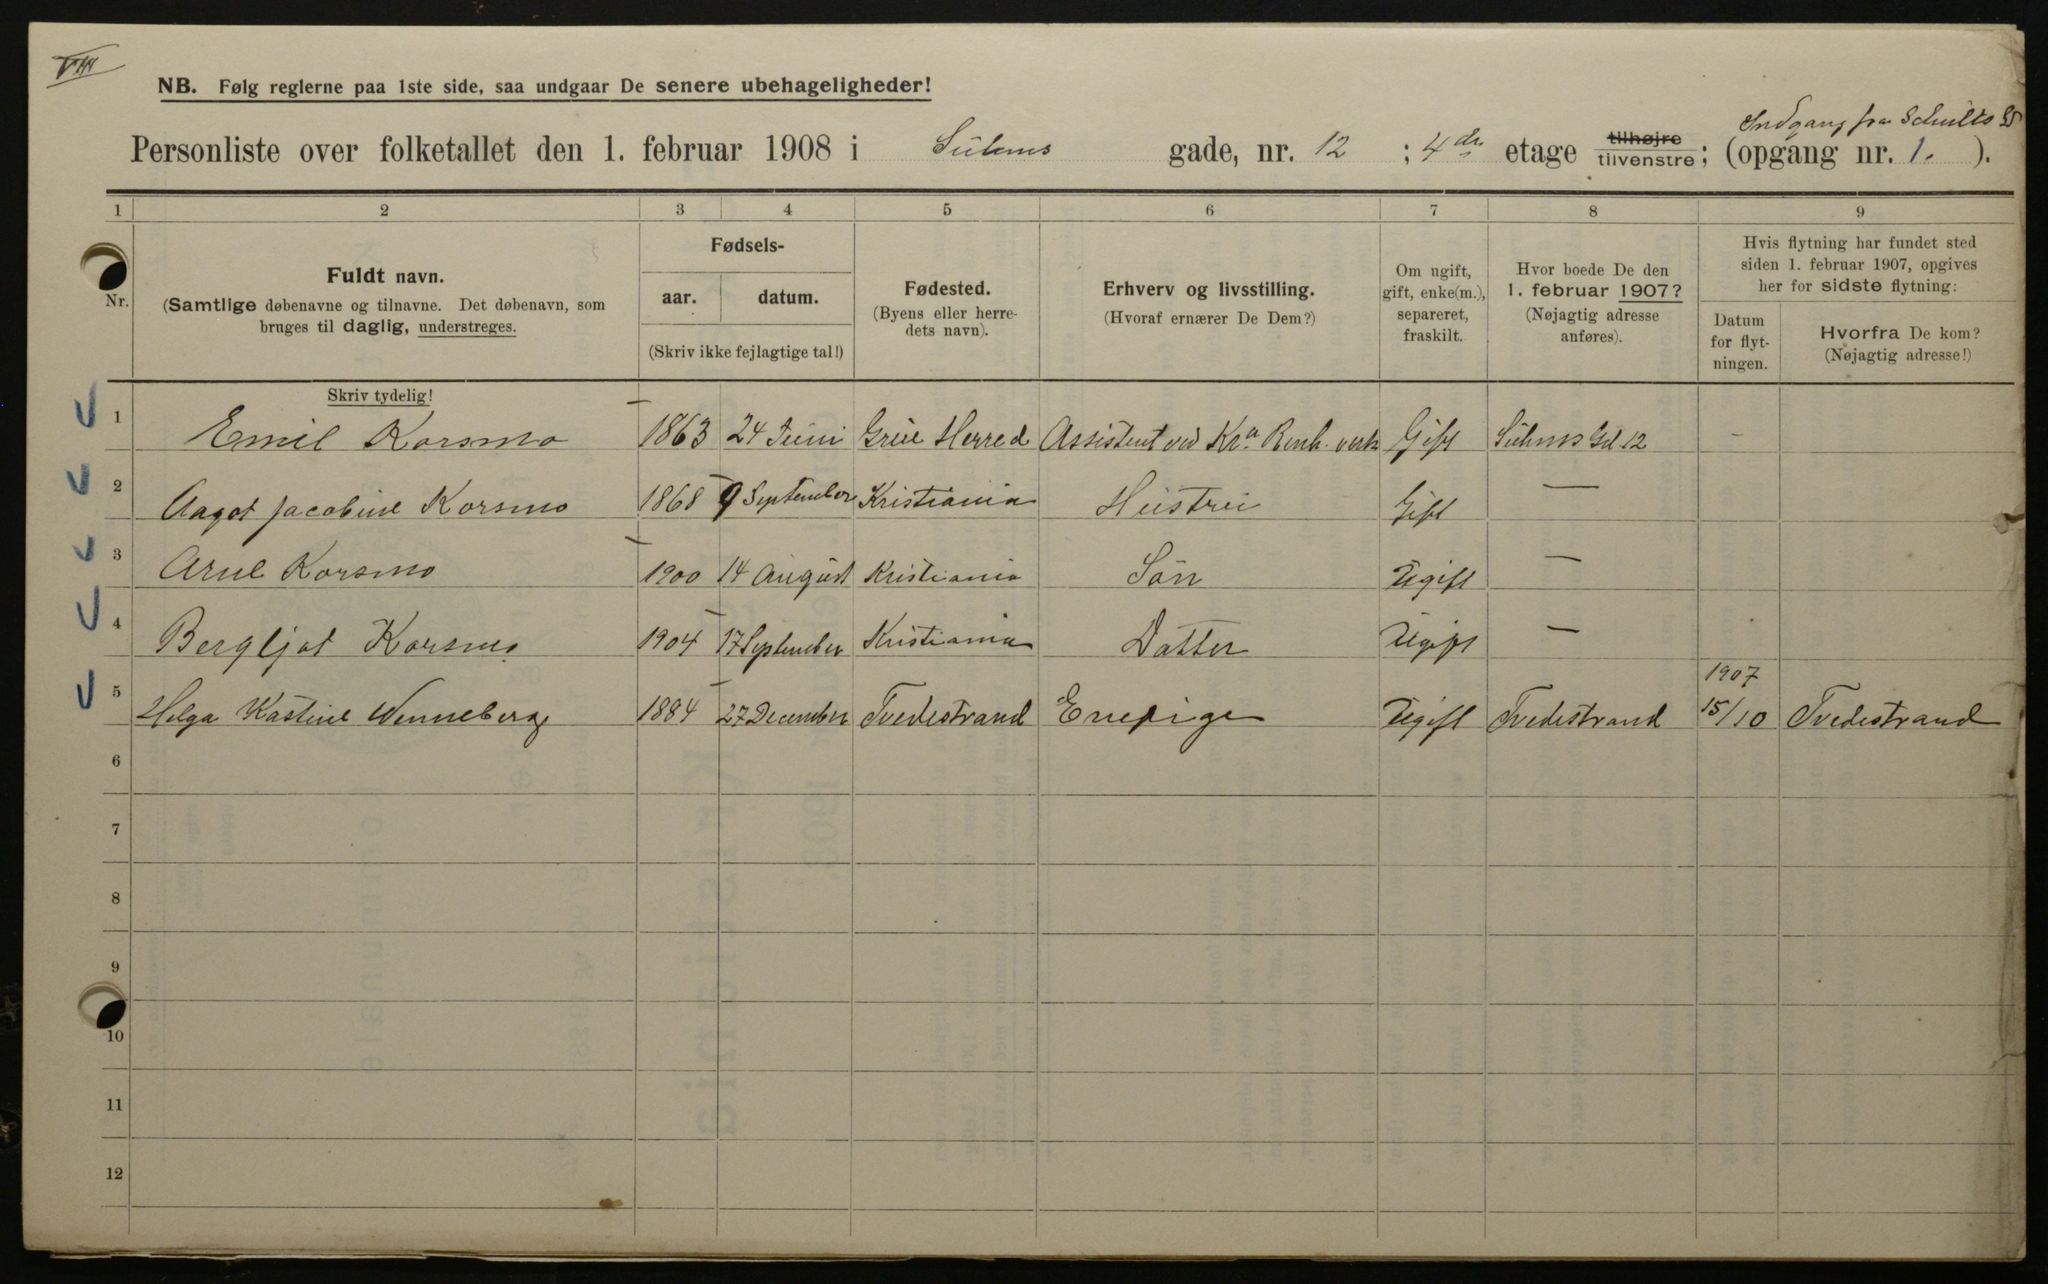 VIII
NB. Følg reglerne paa 1ste side, saa undgaar De senere ubehageligheder!
Indgang fra Schults Gd
Personliste over folketallet den 1. februar 1908 i Suhms gade, nr. 12 ; 4de etage tilhøjre tilvenstre; (opgang nr. 1. ).
1 2 3 4 5 6 7 8 9
Nr.
Fuldt navn.
(Samtlige døbenavne og tilnavne. Det døbenavn, som
bruges til daglig, understreges.
Fødsels-
aar. datum.
(Skriv ikke fejlagtige tal!)
Fødested.
(Byens eller herre-
dets navn).
Erhverv og livsstilling.
(Hvoraf ernærer De Dem?)
Om ugift,
gift, enke(m.),
separeret,
fraskilt.
Hvor boede De den
1. februar 1907?
(Nøjagtig adresse
anføres).
Hvis flytning har fundet sted
siden 1. februar 1907, opgives
her for sidste flytning:
Datum
for flyt-
ningen.
Hvorfra De kom?
(Nøjagtig adresse!)
Skriv tydelig!
1 Emil Korsmo 1863 24 Juni Grue Herred Assistent ved Kra Renh. verk Gift Suhms Gd. 12 –
2 Aagot Jacobine Korsmo 1868 9 September Kristiania Hustru Gift —
3 Arne Korsmo 1900 14 August Kristiania Søn Ugift —
4 Bergljot Korsmo 1904 17 September Kristiania Datter Ugift —
1907
5 Helga Kastine Wenneberg 1884 27 December Tvedestrand Enepige Ugift Tvedestrand 15/10 Tvedestrand
6
7
8
9
10
11
12